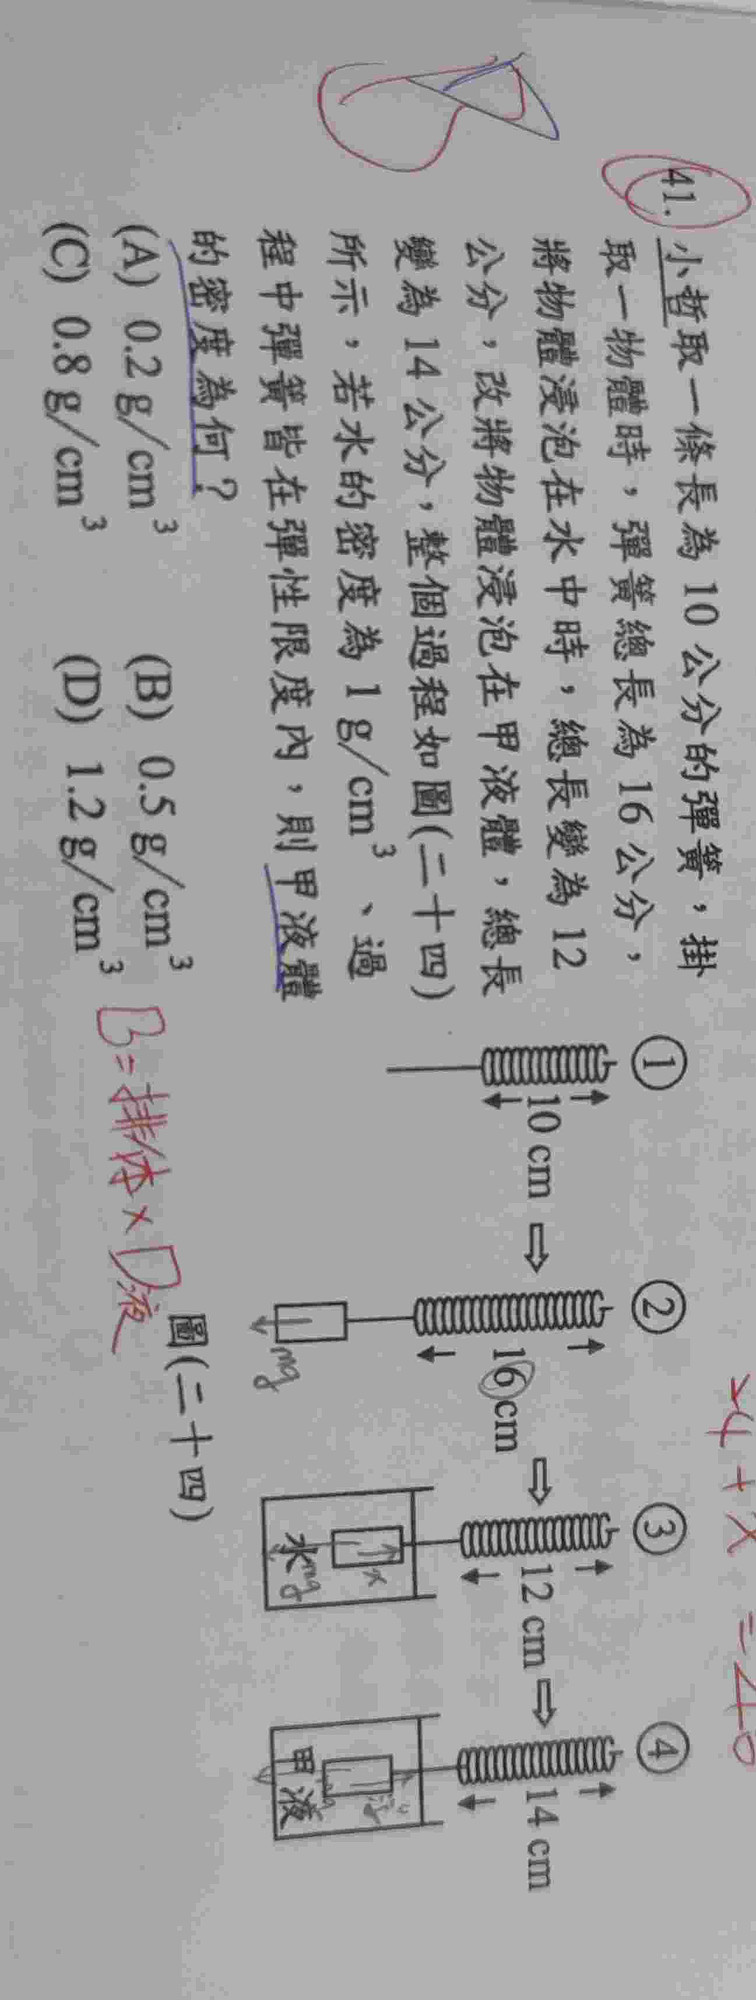 41. 小哲取一條長為 10 公分的彈簧，掛
取一物體時，彈簧總長為 16 公分，
將物體浸泡在水中時，總長變為 12
公分，改將物體浸泡在甲液體，總長
變為 14 公分，整個過程如圖(二十四)
所示，若水的密度為 1 g/cm³、過
程中彈簧皆在彈性限度內，則甲液體
的密度為何？
(A) 0.2 g/cm³ (B) 0.5 g/cm³
(C) 0.8 g/cm³ (D) 1.2 g/cm³
① ② ③ ④
10 cm ⇨ 16 cm ⇨ 12 cm ⇨ 14 cm
mg
水 mg x
甲液
圖(二十四)
B=排体×D液
+x=40